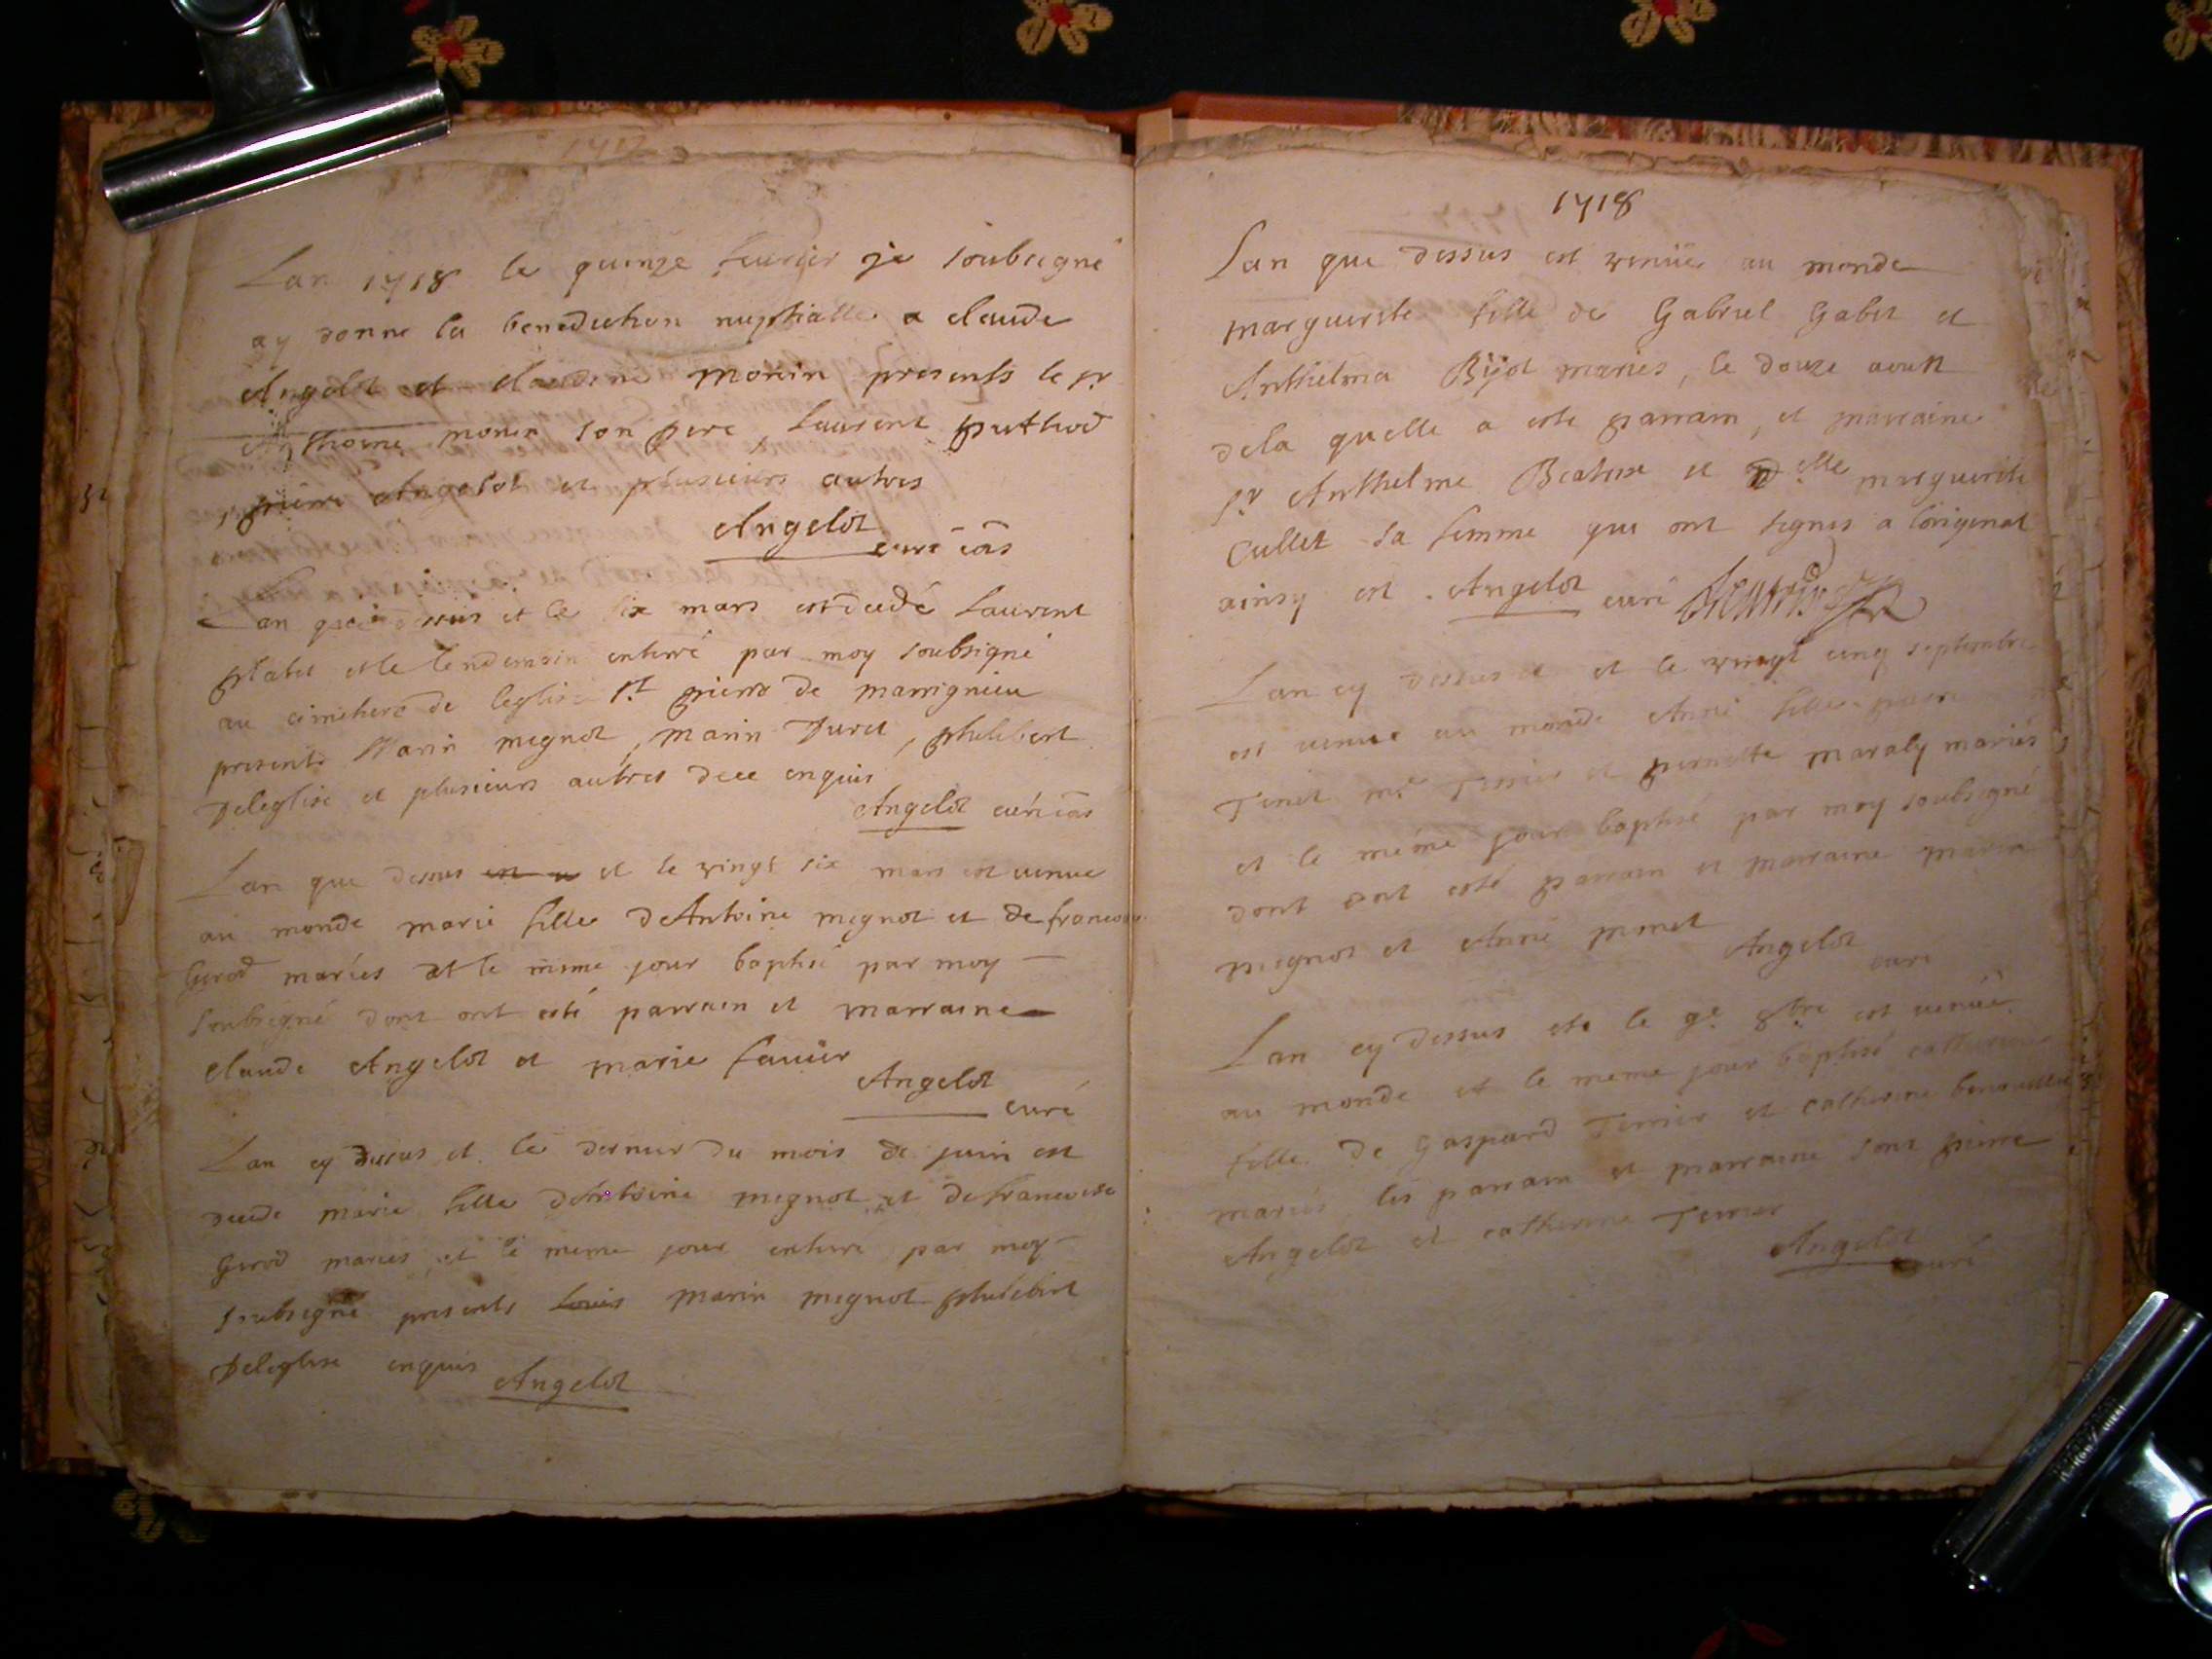 1717
Lan 1718 le quinze feurier je soubsigné
ay donne la benediction nuptialle a claude
Angelot et claudine monin presents le sr
Anthoine monin son pere, Laurent puthod
pierre Angelot et plusieurs autres
Angelot curé
Lan que dessus et le six mars est decedé Laurent
et le lendemain enterré par moy soubsigné
au cimetiere de leglise st pierre de marrignieu
presents Marin mignot, marin Duret, philibert
Deleglise et plusieurs autres de ce enquis
Angelot curé
Lan que dessus et le vingt six mars est venue
au monde marie fille dAntoine mignot et de francoise
Girod mariés et le mesme jour baptisé par moy
soubsigné dont ont esté parrain et marraine
claude Angelot et marie fauier
Angelot
curé
Lan cy dessus et le dernier du mois de juin est
decede marie fille dAntoine mignot et de francoise
Girod mariés et le meme jour enterré par moy
soubsigné presents Louis marin mignot philibert
Deleglise enquis Angelot
1718
Lan que dessus est venüe au monde
marguerite fille de Gabriel Gabet et
Anthelma Bijot mariés, le douze aoust
de la quelle a este parrain, et marraine
sr Anthelme Beatrix et Delle marguerite
Cullet sa femme qui ont signes a loriginal
ainsy est. Angelot curé Beatrix
Lan cy dessus et le vingt cinq septembre
est venue au monde Anne fille pierre
Tinet me Tissier et pernette maraly mariés
et le même jour baptisé par moy soubsigné
dont ont esté parrain et marraine marin
mignot et Anne
Angelot
curé
Lan cy dessus et le 9e 8bre est venüe
au monde et le meme jour baptisé catherine
fille de Gaspard Terrier et catherine
mariés les parrain et marraine sont pierre
Angelot et catherine Terrier
Angelot
curé